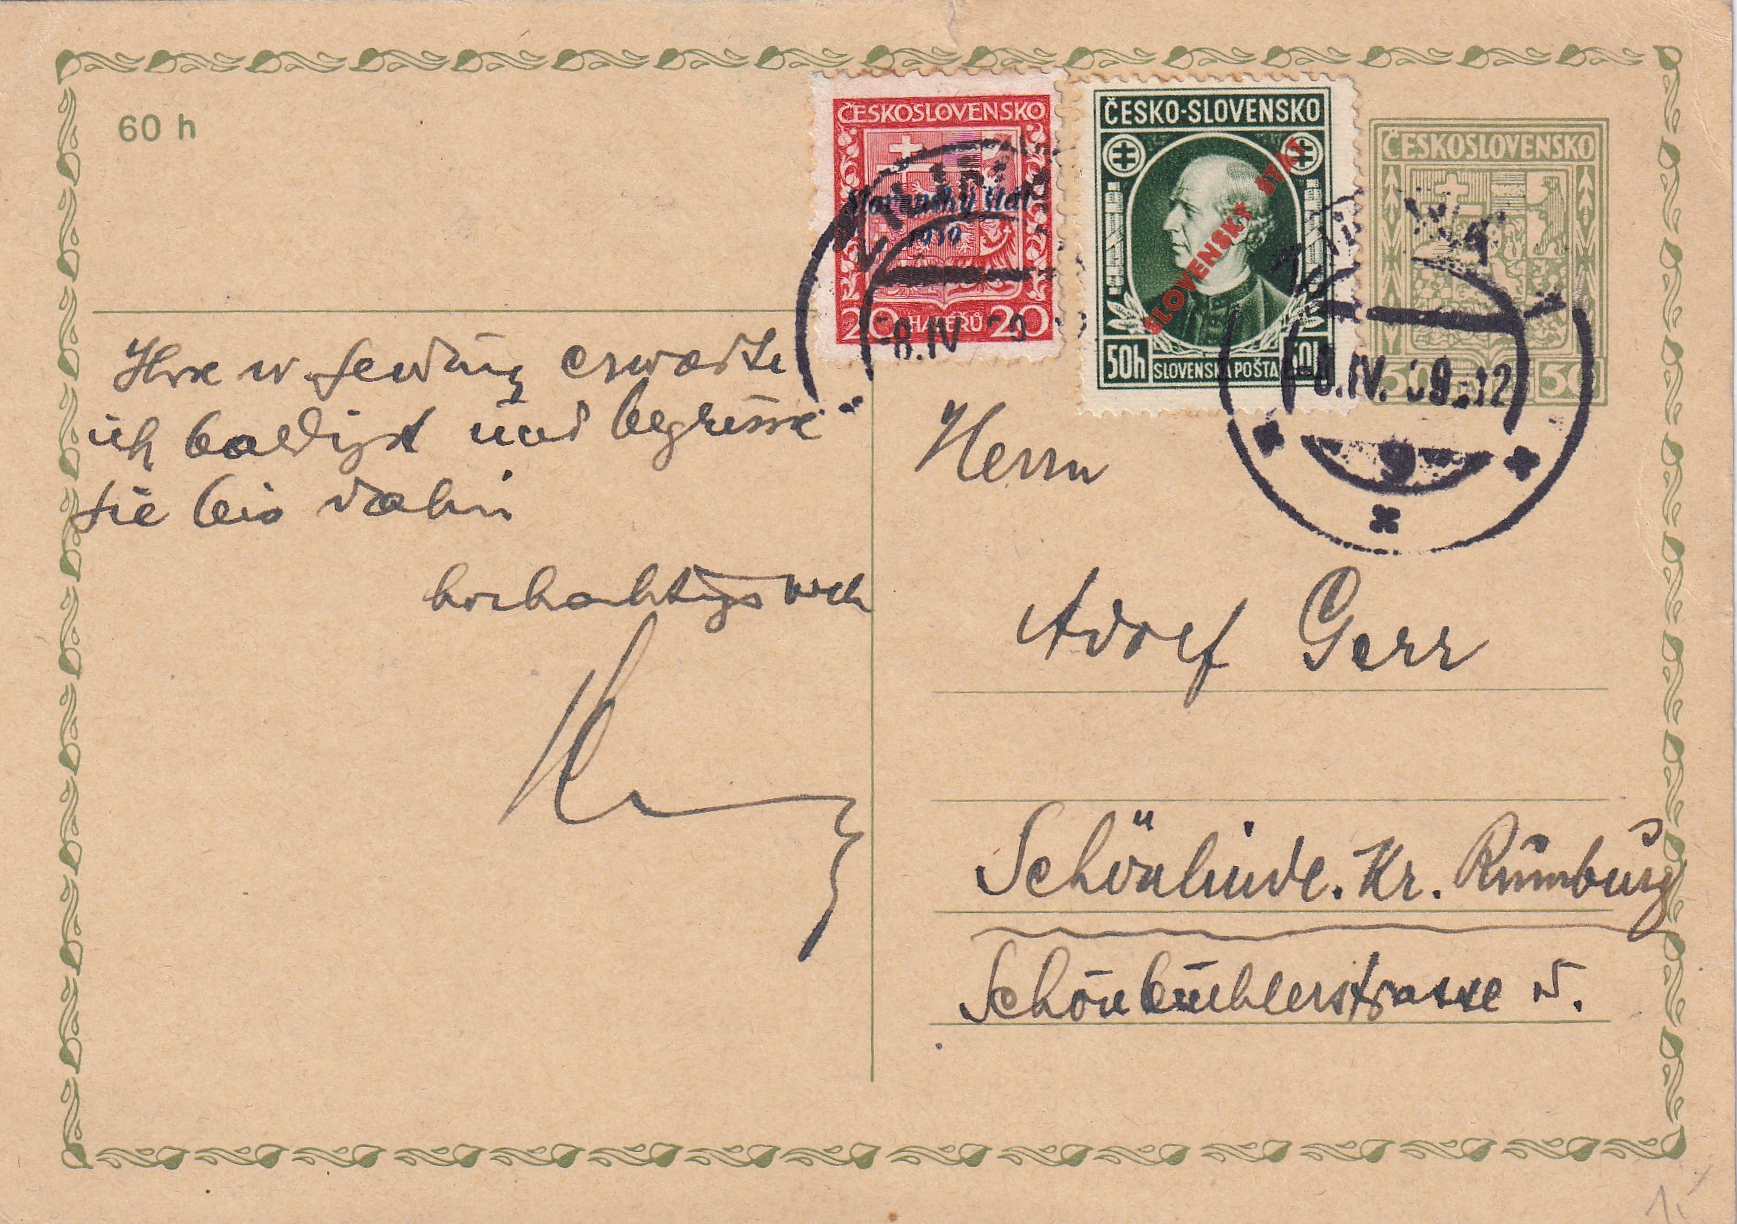 60 h
ČESKOSLOVENSKO
Slovenský štát
1939
20 HALÉŘŮ 20
ČESKO-SLOVENSKO
SLOVENSKÝ ŠTÁT
50h SLOVENSKÁ POŠTA 50h
ČESKOSLOVENSKO
50 50
-8.IV 39
-8.IV.39-12
9
Ihre w Sendung erwarte
ich baldigst und begrüsse
Sie bis dahin
hochachtungsvoll
Herrn
Adolf Gerr
Schönlinde. Kr. Rumburg
Schönbüchlerstrasse